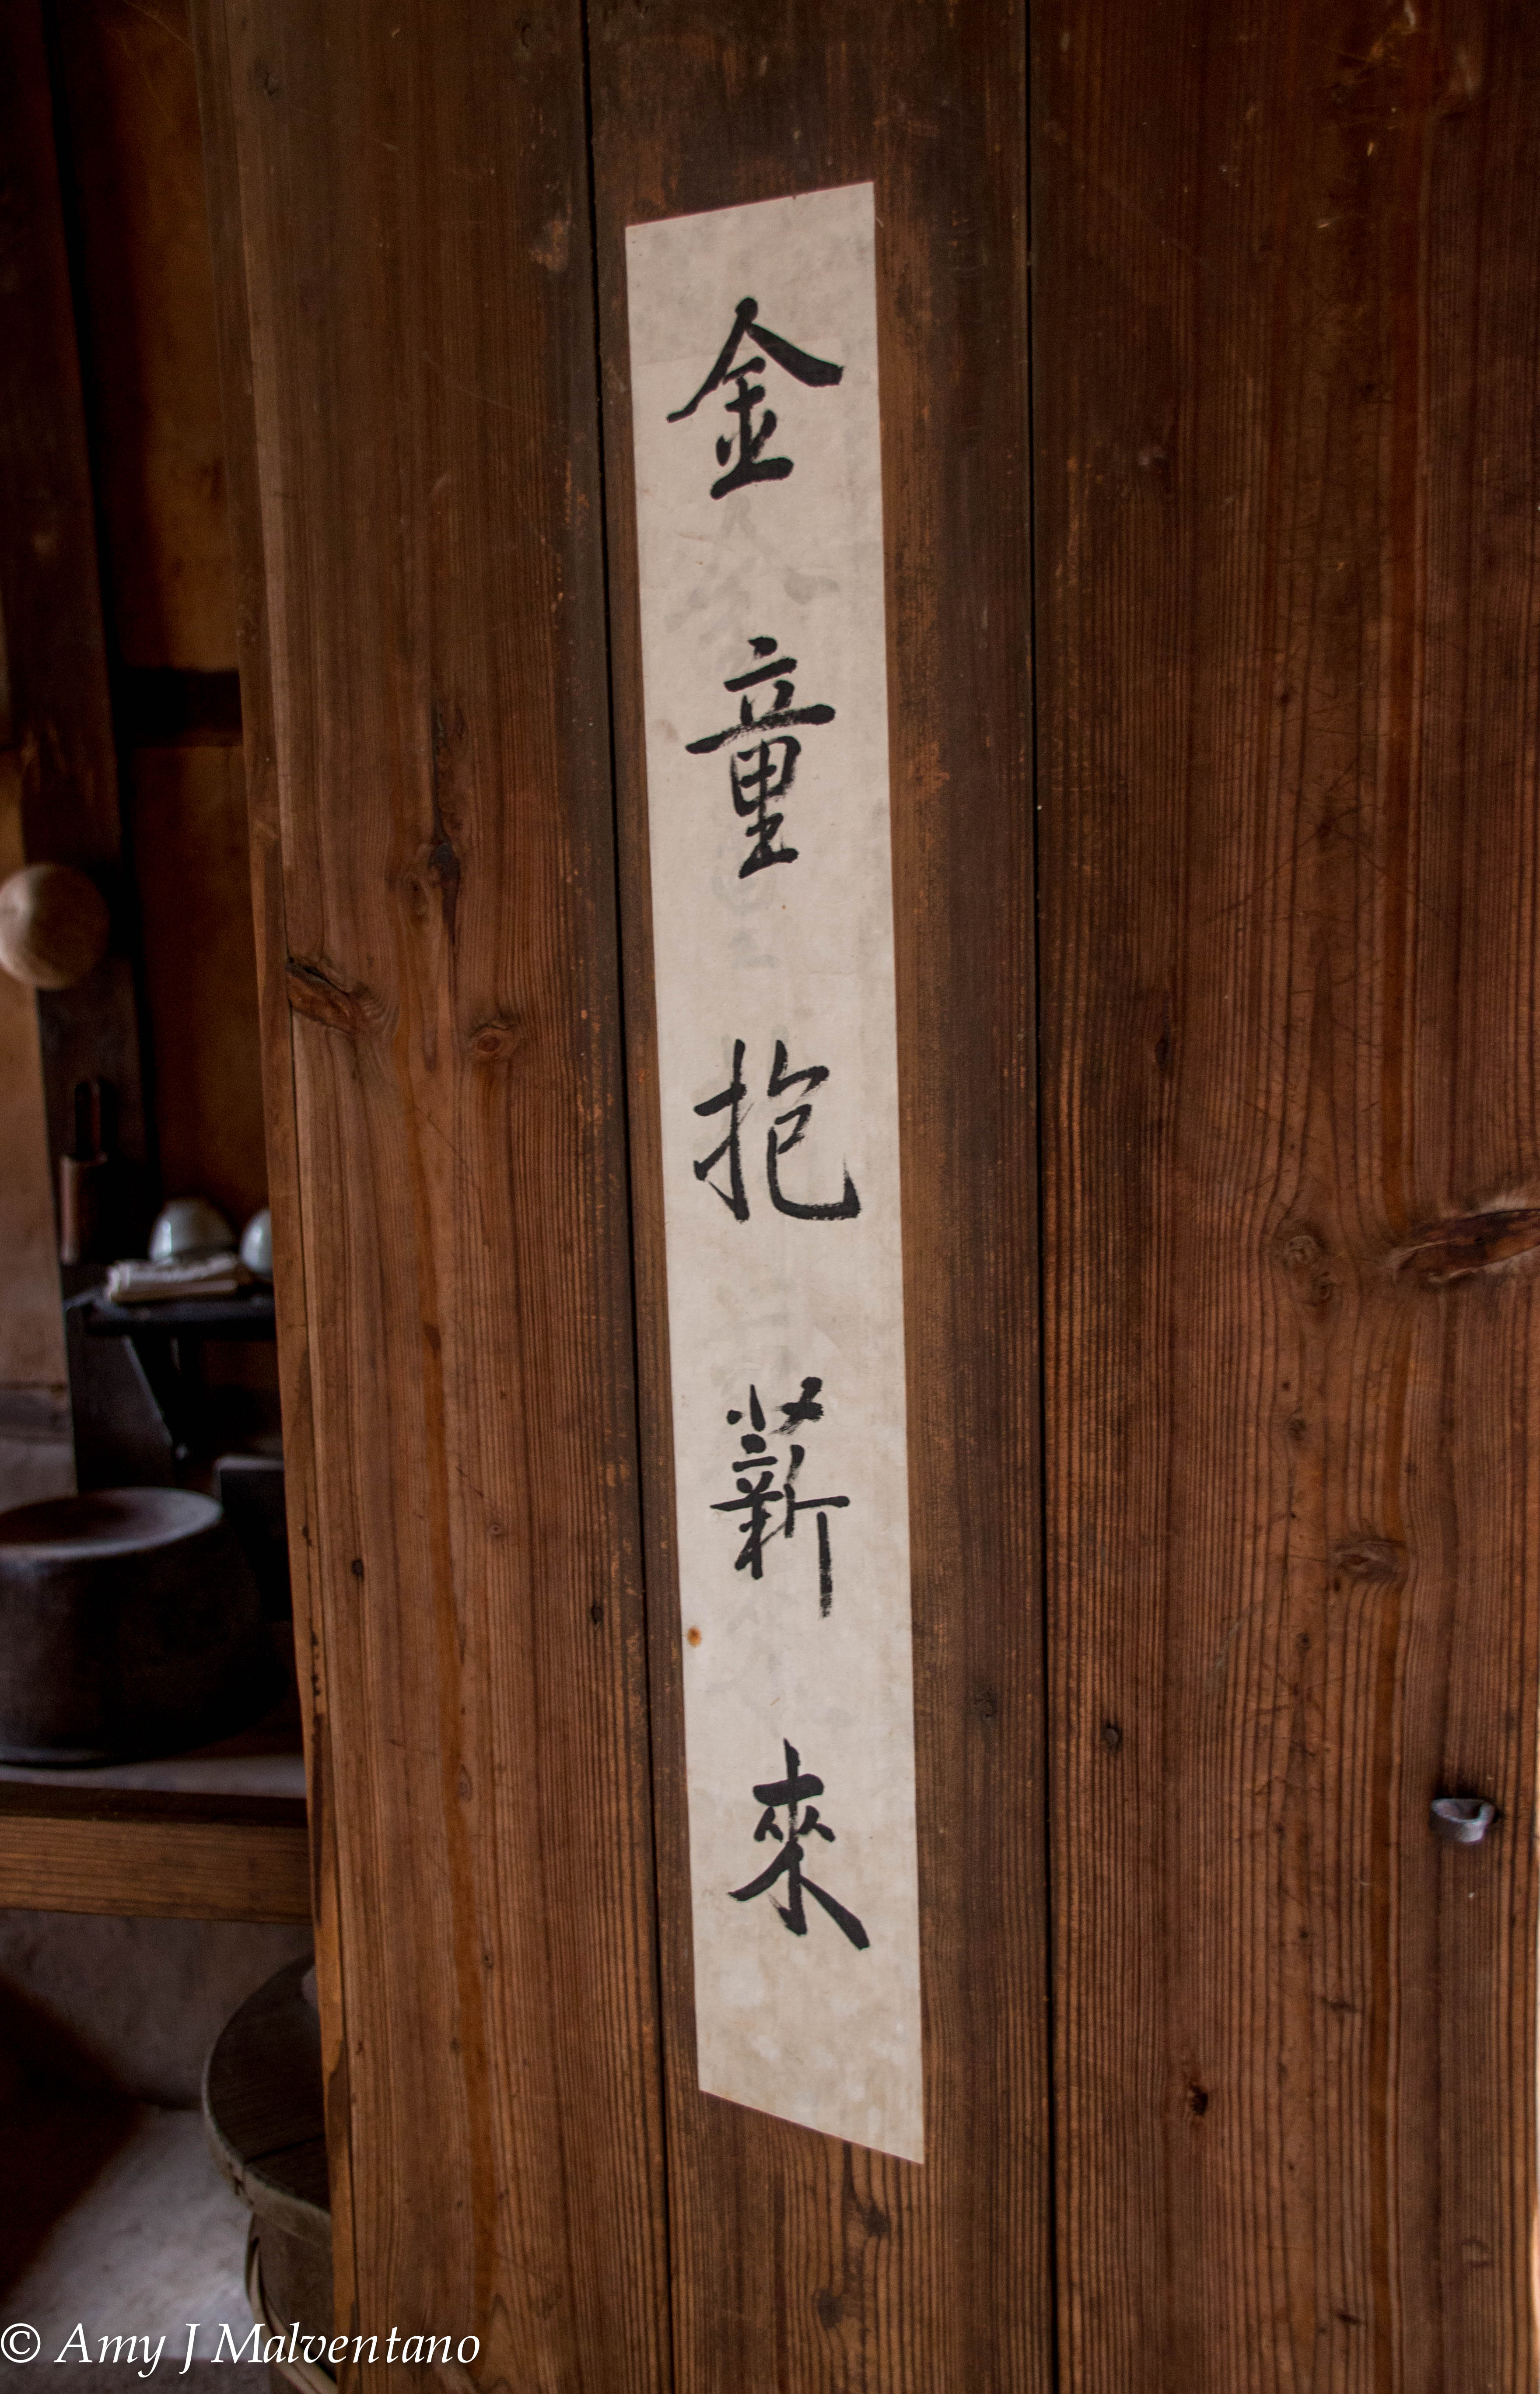 金童抱薪來
© Amy J Malventano